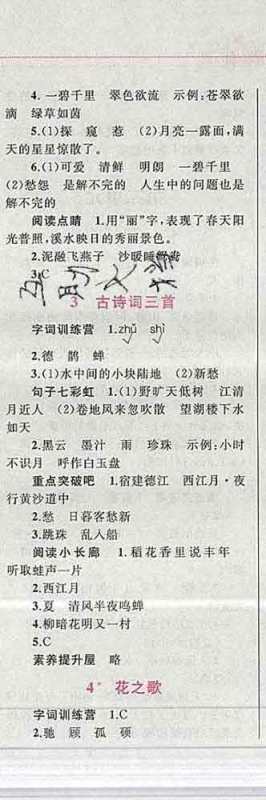 4.一碧千里 翠色欲流 示例:苍翠欲
滴 绿草如茵
5.(1)探 窥 惹 (2)月亮一露面,满
天的星星惊散了。
6.(1)可爱 清鲜 明朗 一碧千里
(2)愁怨 是解不完的 人生中的问题也是
解不完的
阅读点睛 1.用“丽”字,表现了春天阳
光普照,溪水映日的秀丽景色。
2.泥融飞燕子 沙暖睡鸳鸯
3.C
3 古诗词三首
字词训练营 1.zhǔ shì
2.德 鹊 蝉
3.(1)水中间的小块陆地 (2)新愁
句子七彩虹 1.(1)野旷天低树 江清
月近人 (2)卷地风来忽吹散 望湖楼下水
如天
2.黑云 墨汁 雨 珍珠 示例:小时
不识月 呼作白玉盘
重点突破吧 1.宿建德江 西江月·夜
行黄沙道中
2.愁 日暮客愁新
3.跳珠 乱入船
阅读小长廊 1.稻花香里说丰年
听取蛙声一片
2.西江月
3.夏 清风半夜鸣蝉
4.柳暗花明又一村
5.C
素养提升屋 略
4* 花之歌
字词训练营 1.C
2.驰 顾 孤 硕